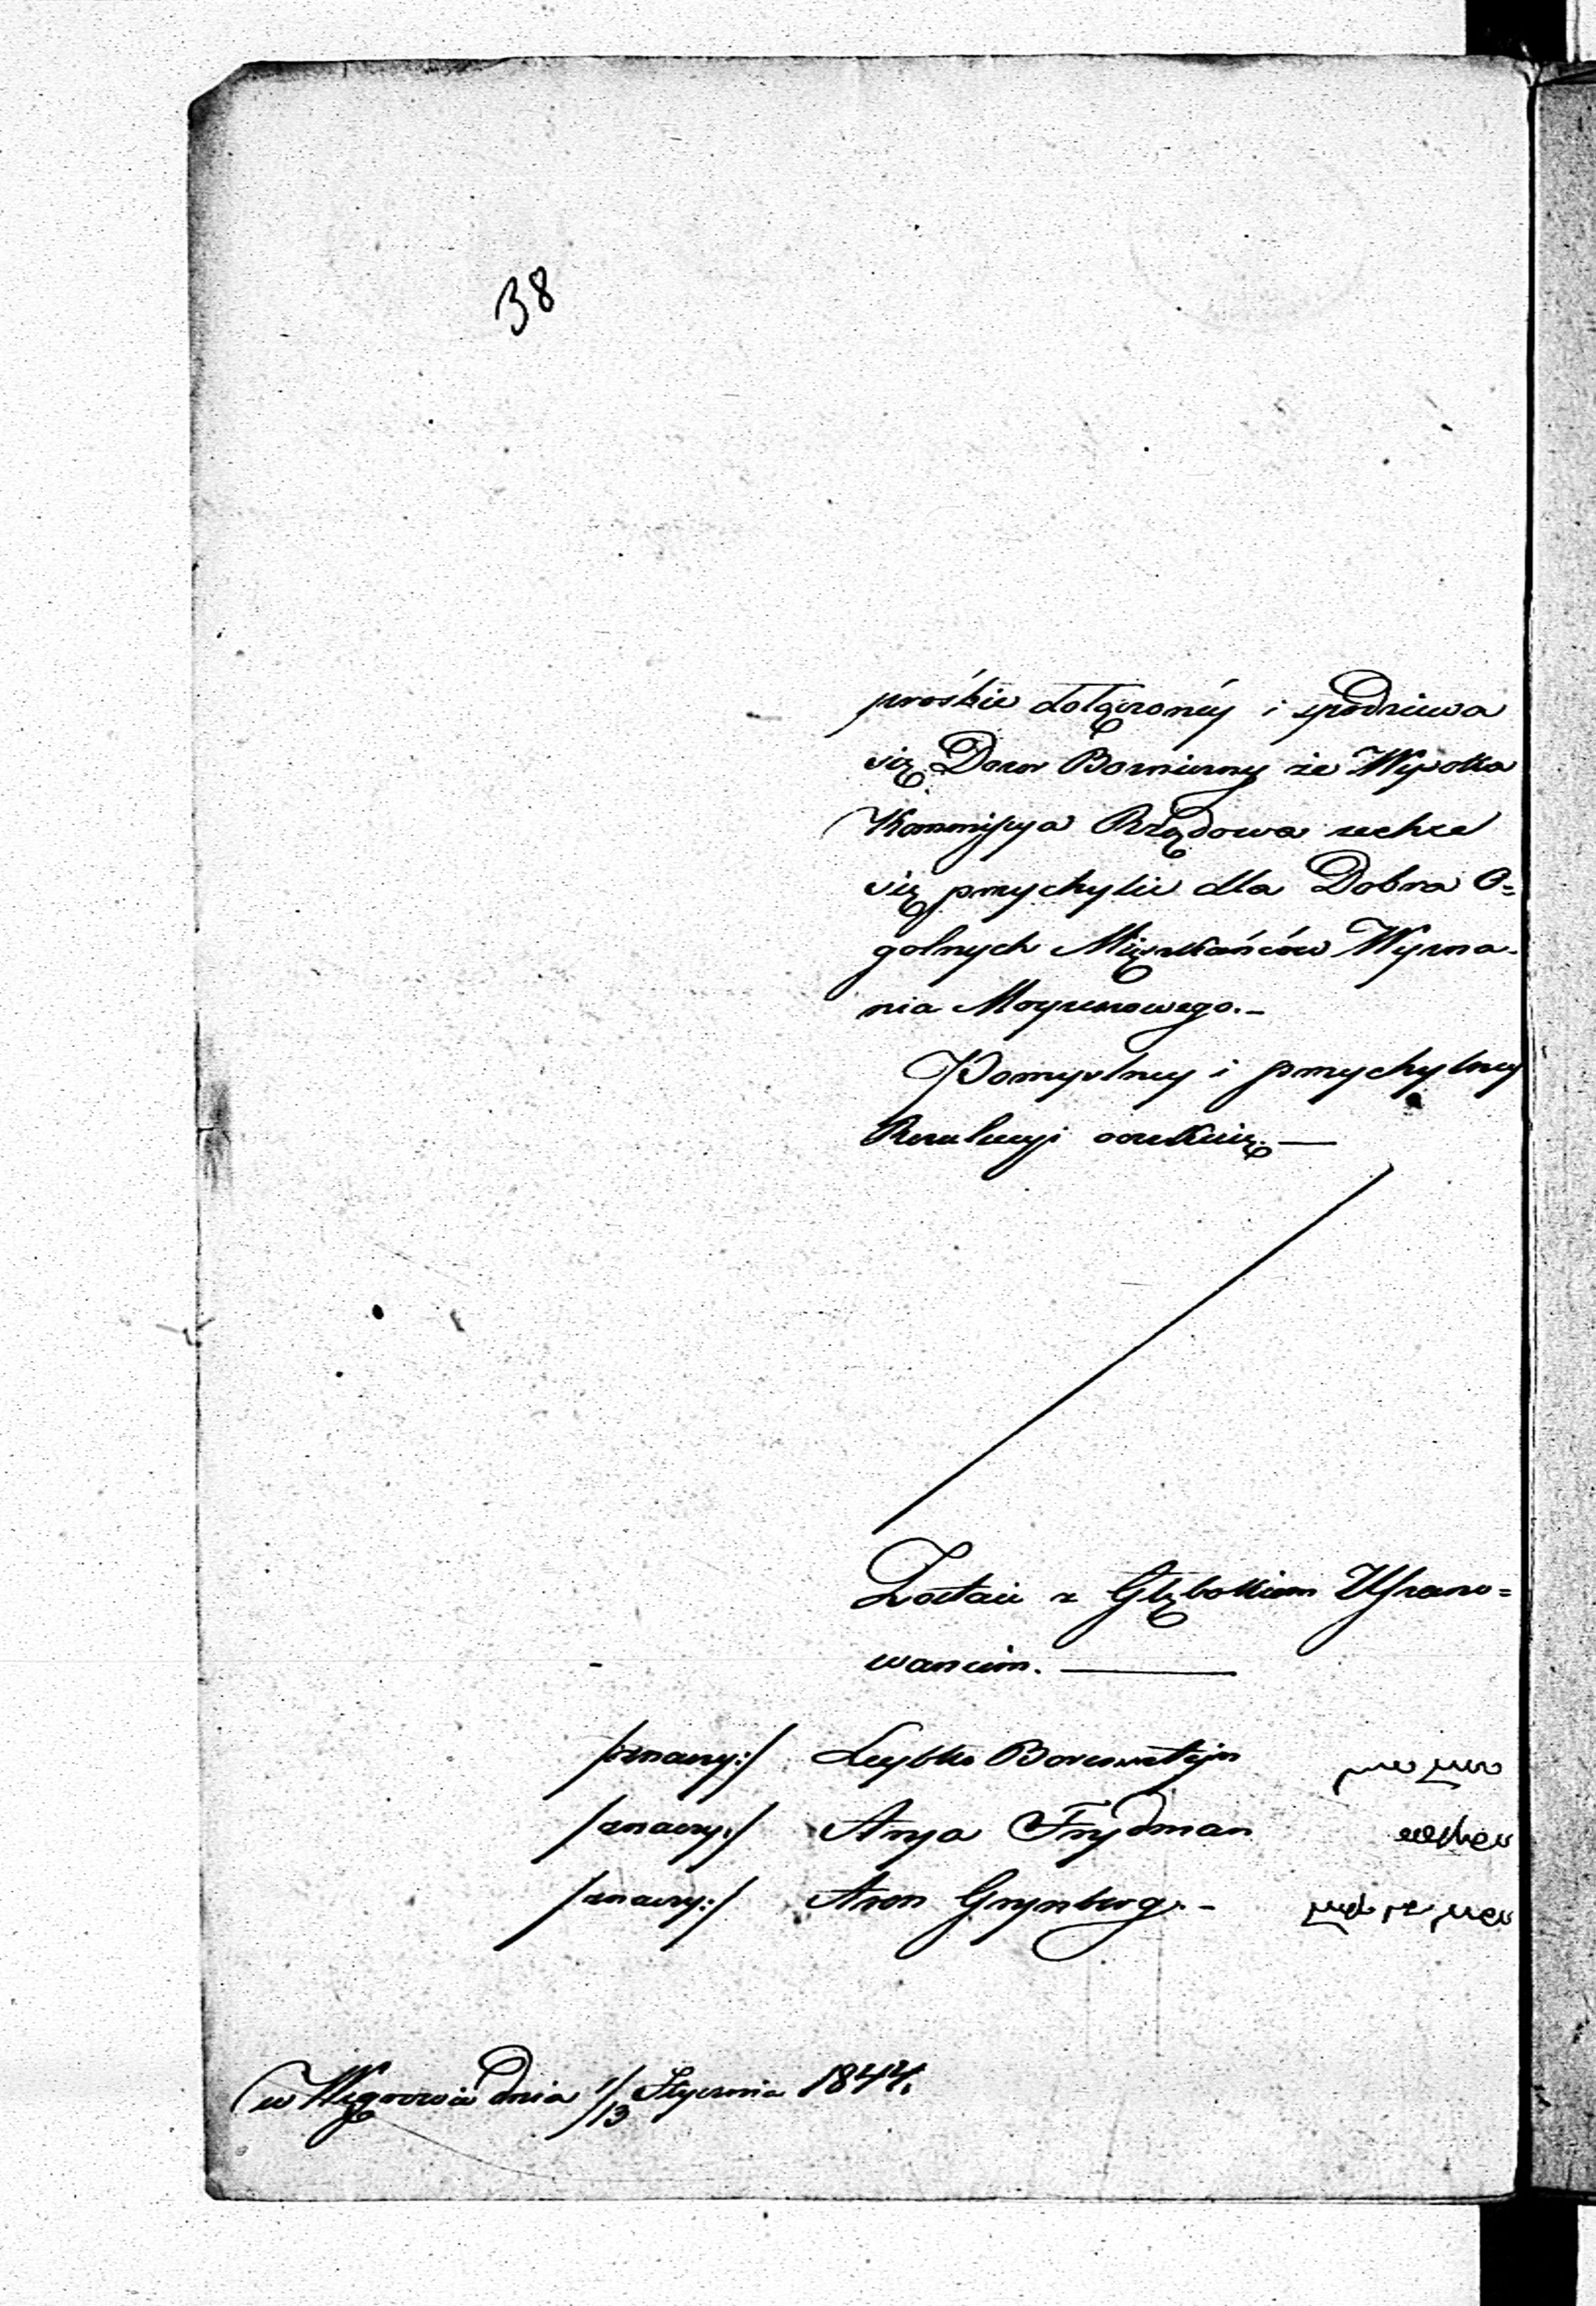 38
prośbie dołączonéy i spodziewa
się Dozor Bozniczny że Wysoka
Kommissya Rządowa zechce
się przychylić dla Dobra O=
golnych Mieszkańców Wyzna-
nia Moyzeszowego.-
Pomyslney i przychylney
Rezulucyi oczekuię.—
Zostaie z Głębokiem Uszano=
waniem.—
/znaczy:/ Leybko Borensztejn
/znaczy:/ Arya Frydman
/znaczy:/ Aron Grynberg.-
w Węgrowie dnia 1/13 Stycznia 1844.